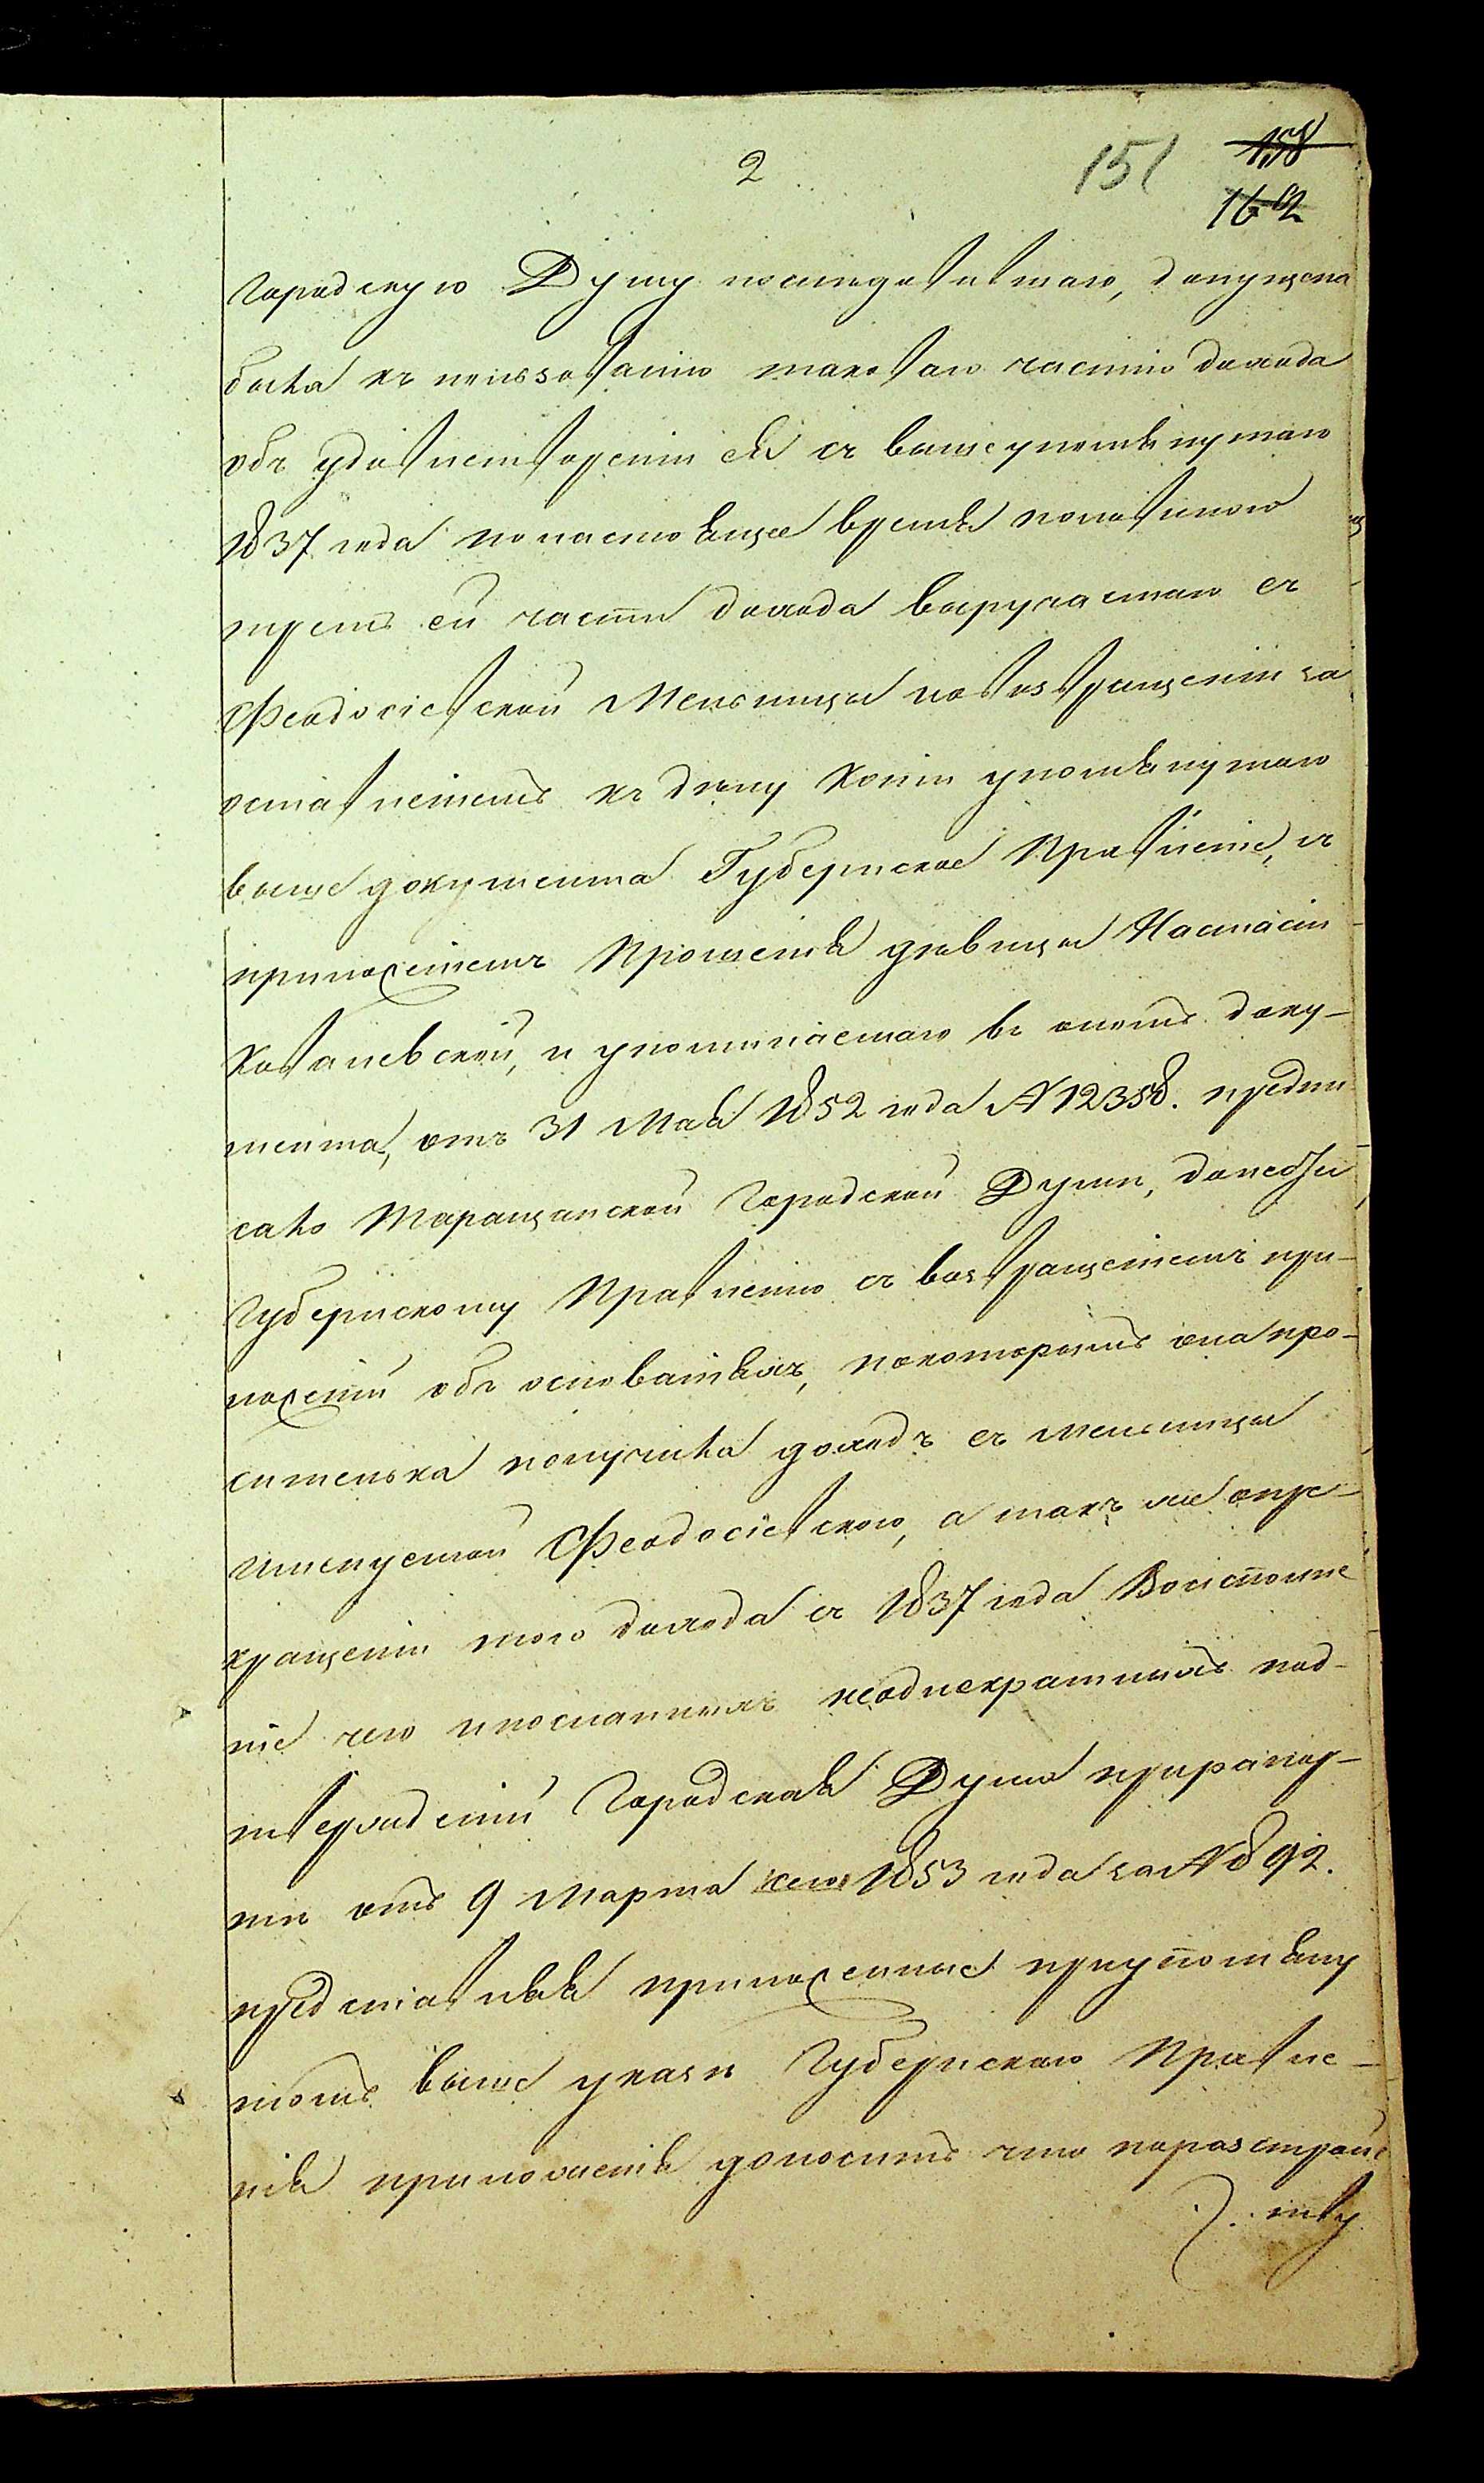 2
151
158
162
городскую Думу последователнаго, допущена
была къ пользованію таковаго частію дохода
объ удовлетвореніи ея съ вышеупомянутаго
1837 года по настоящее время половиною
третей части дохода выручаемаго съ
Феодосіевской Мельницы по возвращеніи за
оставленіемъ къ дѣлу копіи упомянутаго
выше документа Губернское Правленіе, съ
приложеніемъ прошенія дѣвицы Настасіи
Ковалевской, и упоминаемаго въ ономъ доку-
мента, отъ 31 Мая 1852 года N 12358. предпи
сало Таращанской Городской Думѣ, донести
Губернскому Правленію съ возвращеніемъ при-
ложеній объ основаніяхъ, по которымъ она про-
сителька получила доходъ съ мельницы
именуемой Феодосіевскою, а такъ же о пре-
кращеніи того дохода съ 1837 года Во исполне
ніе чего и по неоднократнымъ под-
твержденій Городская Дума при рапор-
тѣ отъ 9 Марта сего 1853 года за N 892.
представляя приложенные при упомяну
томъ выше указѣ Губернскаго Правле-
нія приложенія доноситъ что по разстрой
ству